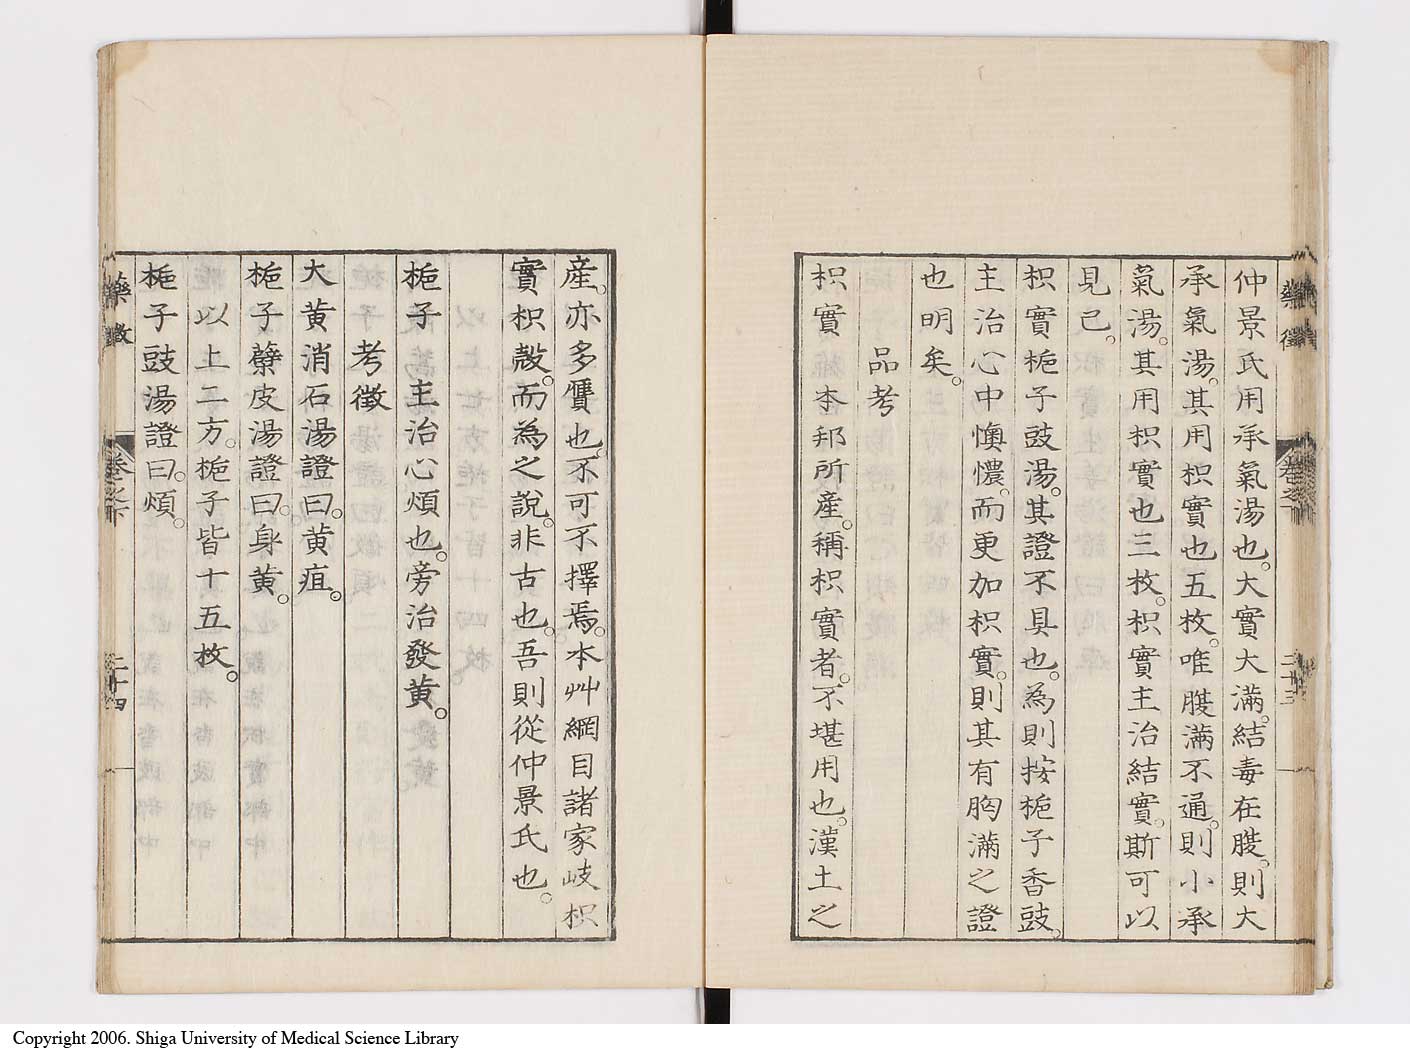 藥徴
卷之下
二十三
仲景氏用承氣湯也。大實大滿。結毒在腹。則大
承氣湯。其用枳實也五枚。唯腹滿不通。則小承
氣湯。其用枳實也三枚。枳實主治結實。斯可以
見已。
枳實梔子豉湯。其證不具也。為則按梔子香豉。
主治心中懊憹。而更加枳實。則其有胸滿之證
也明矣。
品考
枳實 本邦所產。稱枳實者。不堪用也。漢土之
產。亦多贋也。不可不擇焉。本艸綱目諸家岐枳
實枳殼。而為之說。非古也。吾則從仲景氏也。
梔子 主治心煩也。旁治發黃。
考徴
大黃消石湯證曰。黃疸。
梔子蘗皮湯證曰。身黃。
以上二方。梔子皆十五枚。
梔子豉湯證曰。煩。
藥徴
卷之下
二十四
Copyright 2006. Shiga University of Medical Science Library